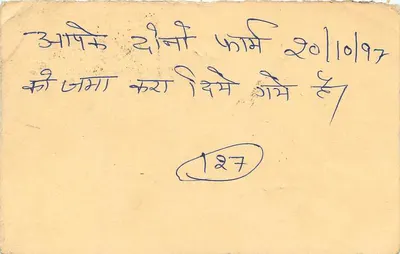 आपके दोनों फार्म 20/10/97
को जमा करा दिये गये है।
127